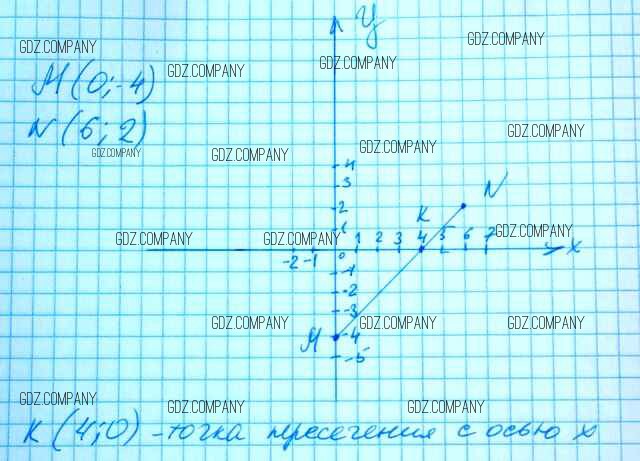 y
GDZ.COMPANY
GDZ.COMPANY
GDZ.COMPANY
GDZ.COMPANY
M(0;-4)
N(6;2)
GDZ.COMPANY
GDZ.COMPANY
GDZ.COMPANY
GDZ.COMPANY
4
3
2
1
K
N
GDZ.COMPANY
GDZ.COMPANY
GDZ.COMPANY
-2 -1 0 1 2 3 4 5 6 7 x
-1
-2
-3
GDZ.COMPANY
GDZ.COMPANY
GDZ.COMPANY
M -4
-5
GDZ.COMPANY
GDZ.COMPANY
GDZ.COMPANY
K(4;0) - точка пересечения с осью x